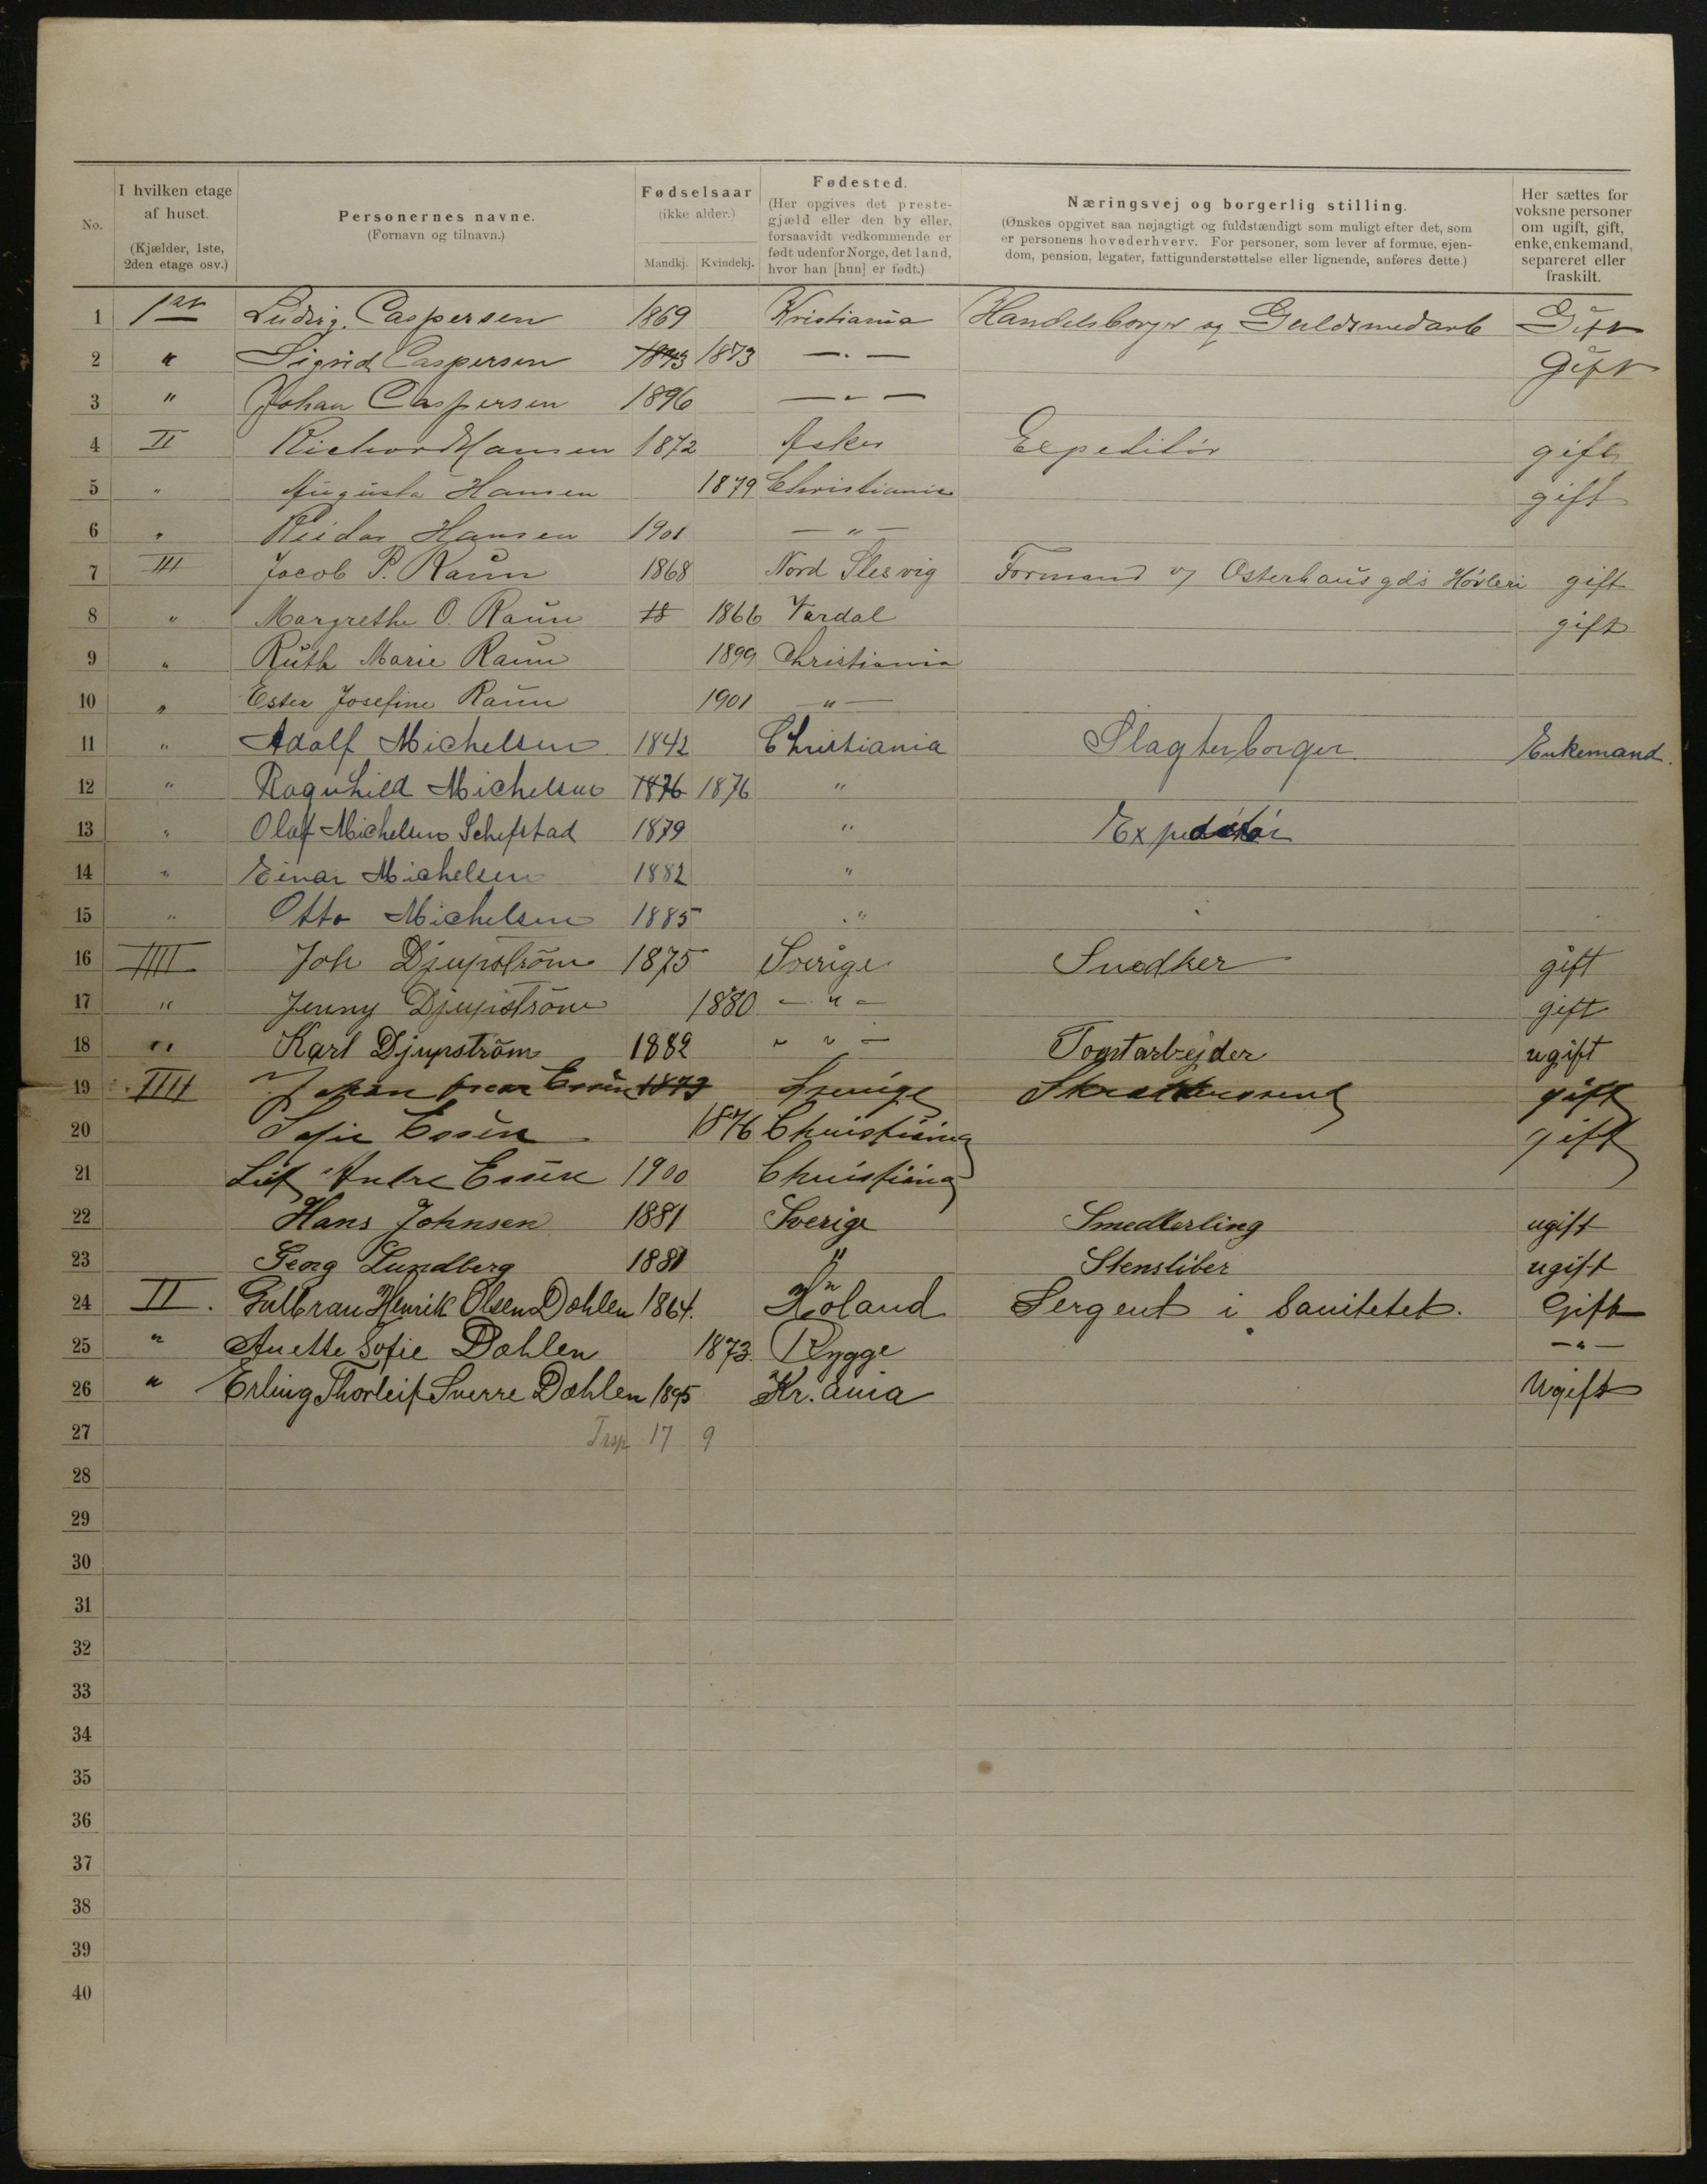 No.
I hvilken etage af huset. (Kjælder, 1ste, 2den etage osv.)
Personernes navne. (Fornavn og tilnavn.)
Fødselsaar (ikke alder.) Mandkj. Kvindekj.
Fødested. (Her opgives det prestegjæld eller den by eller, forsaavidt vedkommende er født udenfor Norge, det land, hvor han [hun] er født.)
Næringsvej og borgerlig stilling. (Ønskes opgivet saa nøjagtigt og fuldstændigt som muligt efter det, som er personens hovederhverv. For personer, som lever af formue, ejendom, pension, legater, fattigunderstøttelse eller lignende, anføres dette.)
Her sættes for voksne personer om ugift, gift, enke, enkemand, separeret eller fraskilt.
1 1ste Ludvig Caspersen 1869 Kristiania Handelsborger og Guldsmedarb Gift
2 " Sigrid Caspersen 1873 1873 — . — Gift
3 " Johan Caspersen 1896 — " —
4 II Richard Hansen 1872 Asker Expeditör gift
5 " Augusta Hansen 1879 Christiania gift
6 " Reidar Hansen 1901 — " —
7 III Jacob P. Raun 1868 Nord Slesvig Formand Osterhausgds Høvleri gift
8 " Margrethe O. Raun 18 1866 Vardal gift
9 " Ruth Marie Raun 1899 Christiania
10 " Ester Josefine Raun 1901 — " —
11 " Adolf Michelsen 1842 Christiania Slagterborger. Enkemand.
12 " Ragnhild Michelsen 1876 1876 "
13 " Olaf Michelsen Schefstad 1879 " Expeditör
14 " Einar Michelsen 1882 "
15 " Otto Michelsen 1885 "
16 IIII Joh Djupström 1875 Sverige Snedker gift
17 " Jenny Djupström 1880 — " — gift
18 " Karl Djupström 1882 " " — Tomtarbejder ugift
19 IIII Johan Essén 1873 Sverige gift
20 Sofie Essén 1876 Christiania gift
21 Leif Andre Essén 1900 Christiania
22 Hans Johnsen 1881 Sverige Smedlerling ugift
23 Georg Lundberg 1881 " Stensliber ugift
24 II. Gulbran Henrik Olsen Dæhlen 1864. Höland Sergent i Sanitetet. Gift
25 " Anette Sofie Dæhlen 1873. Rygge — " —
26 " Erling Thorleif Sverre Dæhlen 1895 Kr.ania Ugift
27 17 9
28
29
30
31
32
33
34
35
36
37
38
39
40